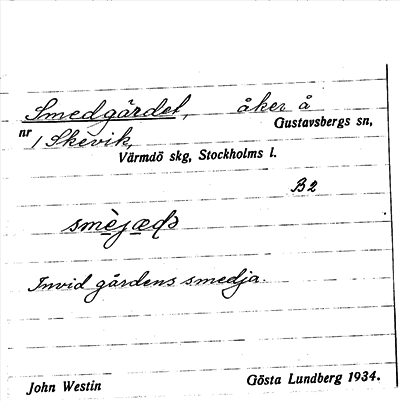 Smedgärdet, åker å
Gustavsbergs sn,
nr
1 Skevik,
Värmdö skg, Stockholms l.
B2
Invid gårdens smedja.
John Westin Gösta Lundberg 1934.